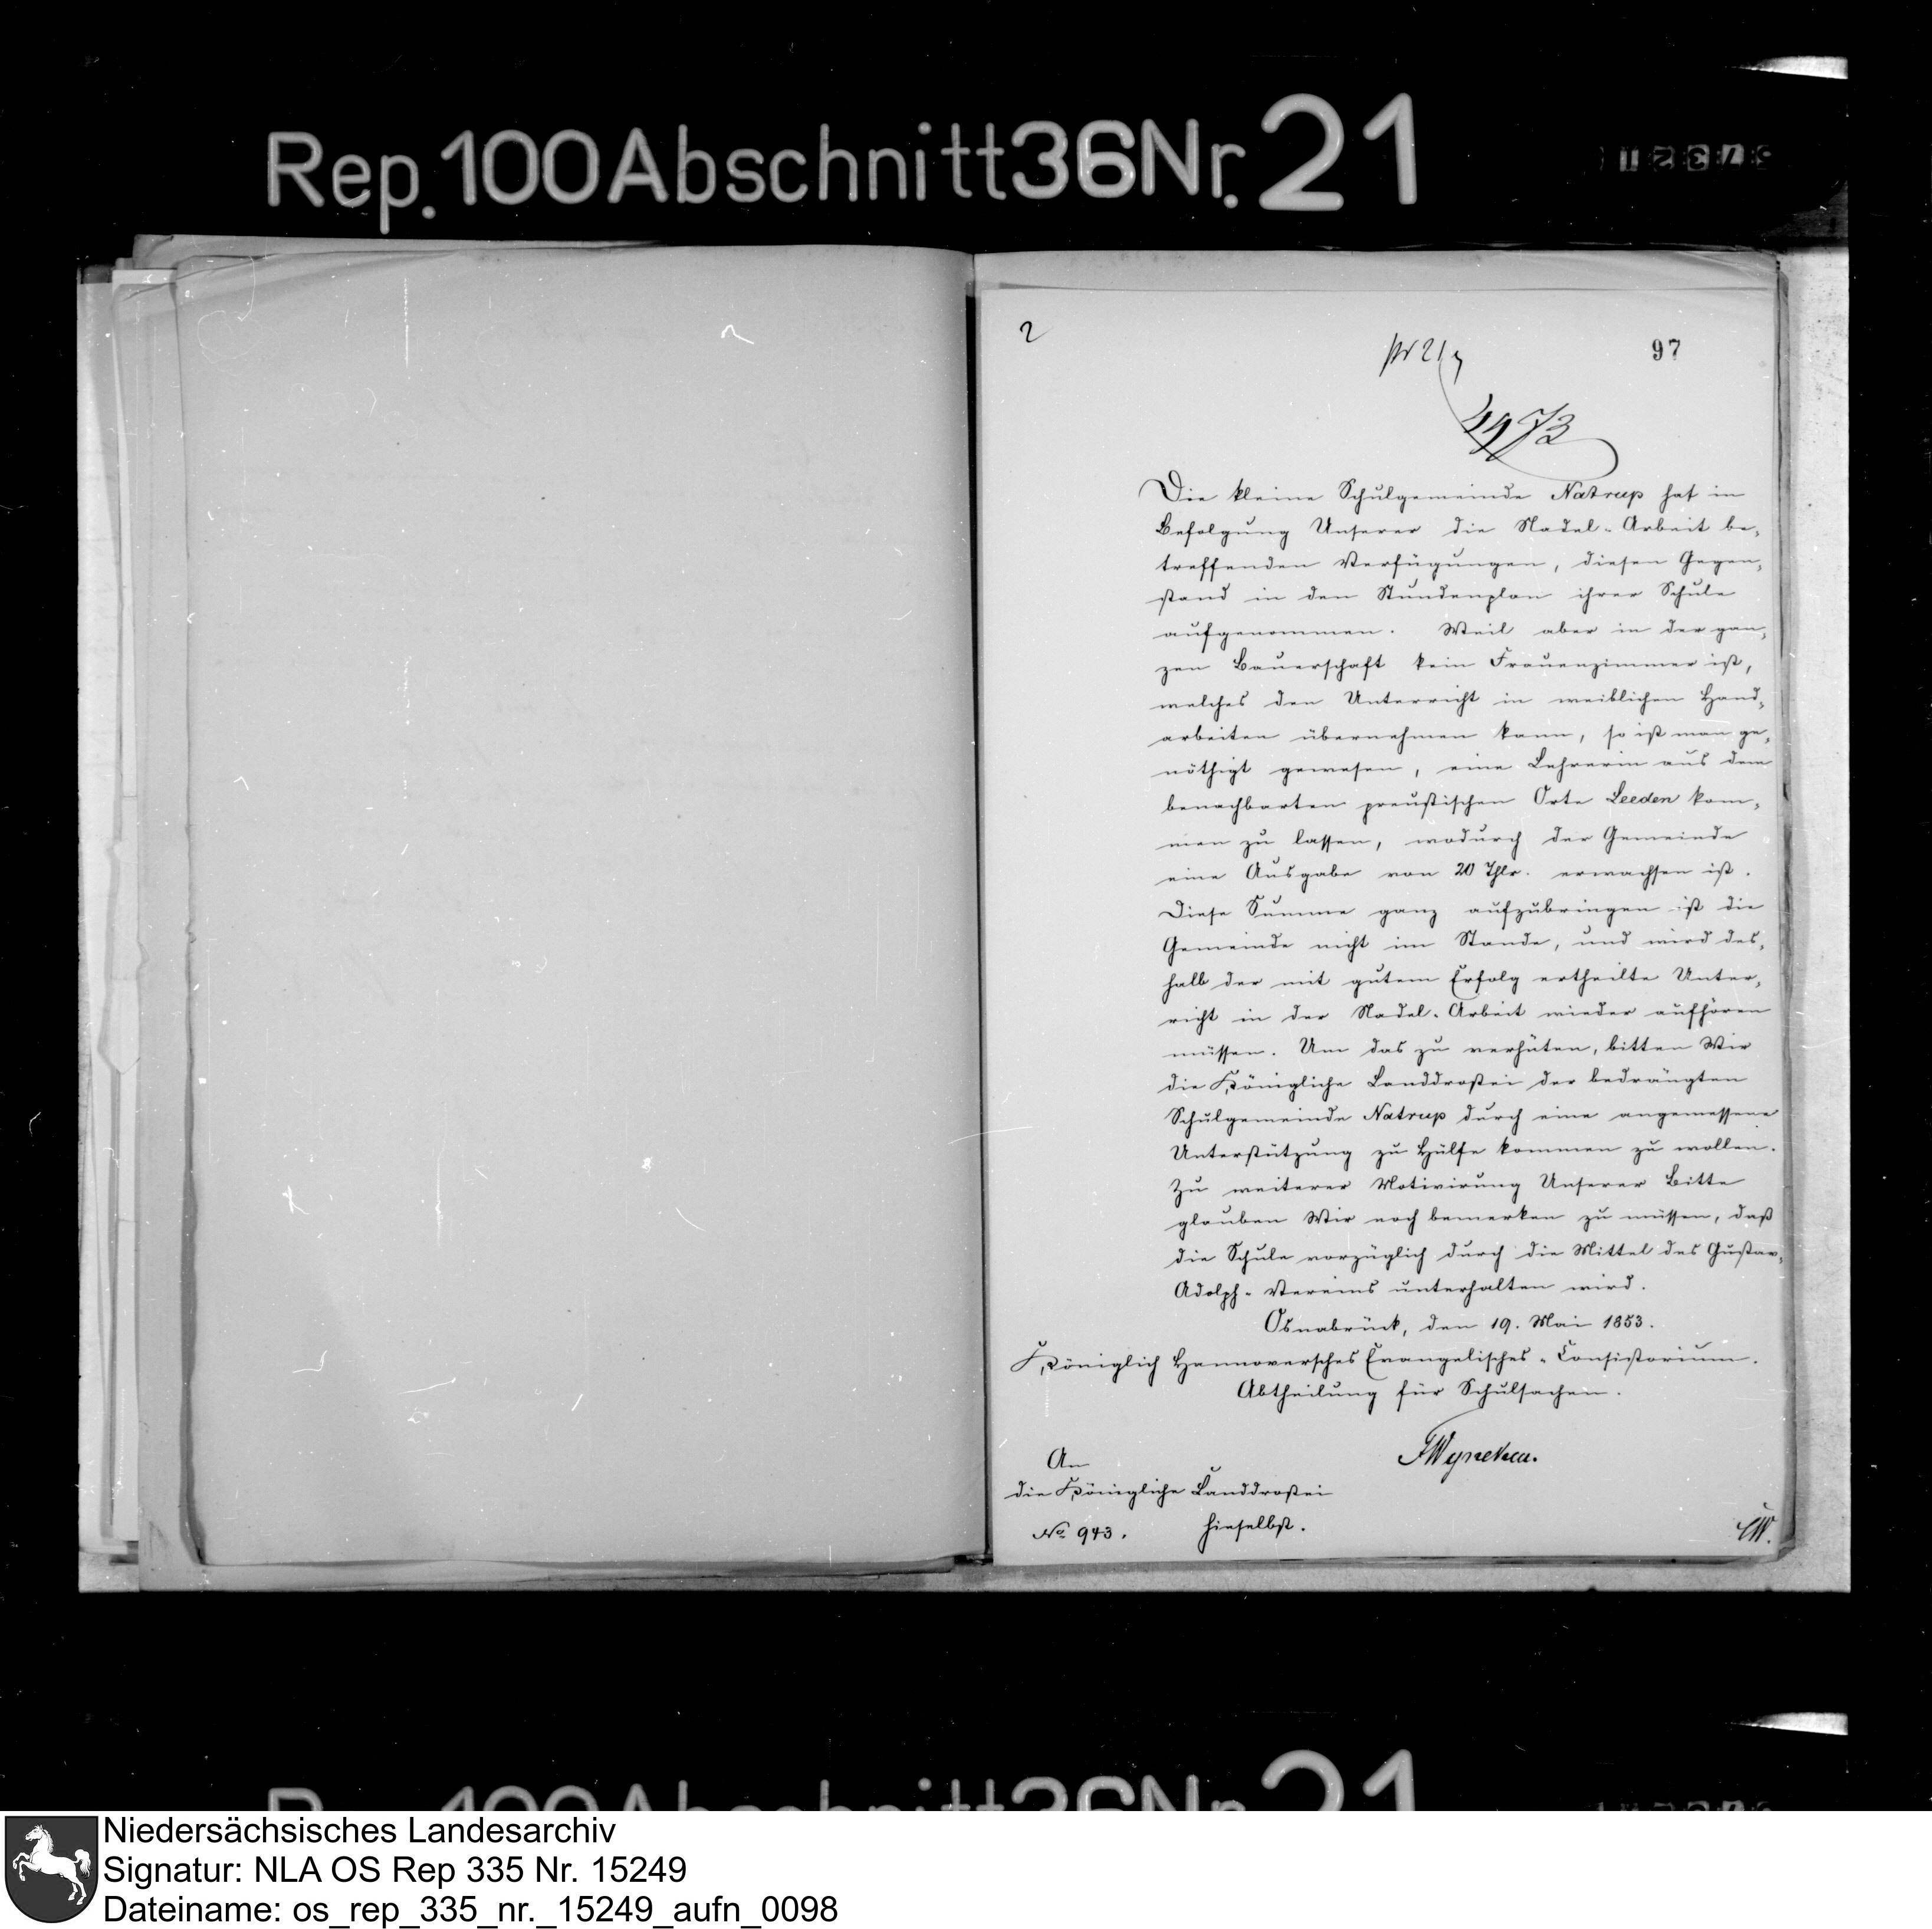 Rep. 100 Abschnitt 36 Nr. 21
2
97
4973
Die kleine Schulgemeinde Natrup hat in
Befolgung Unserer die Nadel-Arbeit be-
treffenden Verfügungen, diesen Gegen-
stand in den Stundenplan ihrer Schule
aufgenommen. Weil aber in der gan-
zen Bauerschaft kein Frauenzimmer ist,
welches den Unterricht in weiblichen Hand-
arbeiten übernehmen kann, so ist man ge-
nöthigt gewesen, eine Lehrerin aus dem
benachbarten preußischen Orte Leeden kom-
men zu lassen, wodurch der Gemeinde
eine Ausgabe von 20 Thlr. erwachsen ist.
Diese Summe ganz aufzubringen ist die
Gemeinde nicht im Stande, und wird des-
halb der mit gutem Erfolg ertheilte Unter-
richt in der Nadel-Arbeit wieder aufhören
müssen. Um das zu verhüten, bitten Wir
die Königliche Landdrostei der bedrängten
Schulgemeinde Natrup durch eine angemessene
Unterstützung zu Hülfe kommen zu wollen.
Zu weiterer Motivirung Unserer Bitte
glauben Wir noch bemerken zu müssen, daß
die Schule vorzüglich durch die Mittel des Gustav-
Adolph-Vereins unterhalten wird.
Osnabrück, den 19. Mai 1853.
Königlich Hannoversches Evangelisches-Consistorium.
Abtheilung für Schulsachen.
Wyneken.
An
die Königliche Landdrostei
hieselbst.
No 943.
Niedersächsisches Landesarchiv
Signatur: NLA OS Rep 335 Nr. 15249
Dateiname: os_rep_335_nr._15249_aufn_0098